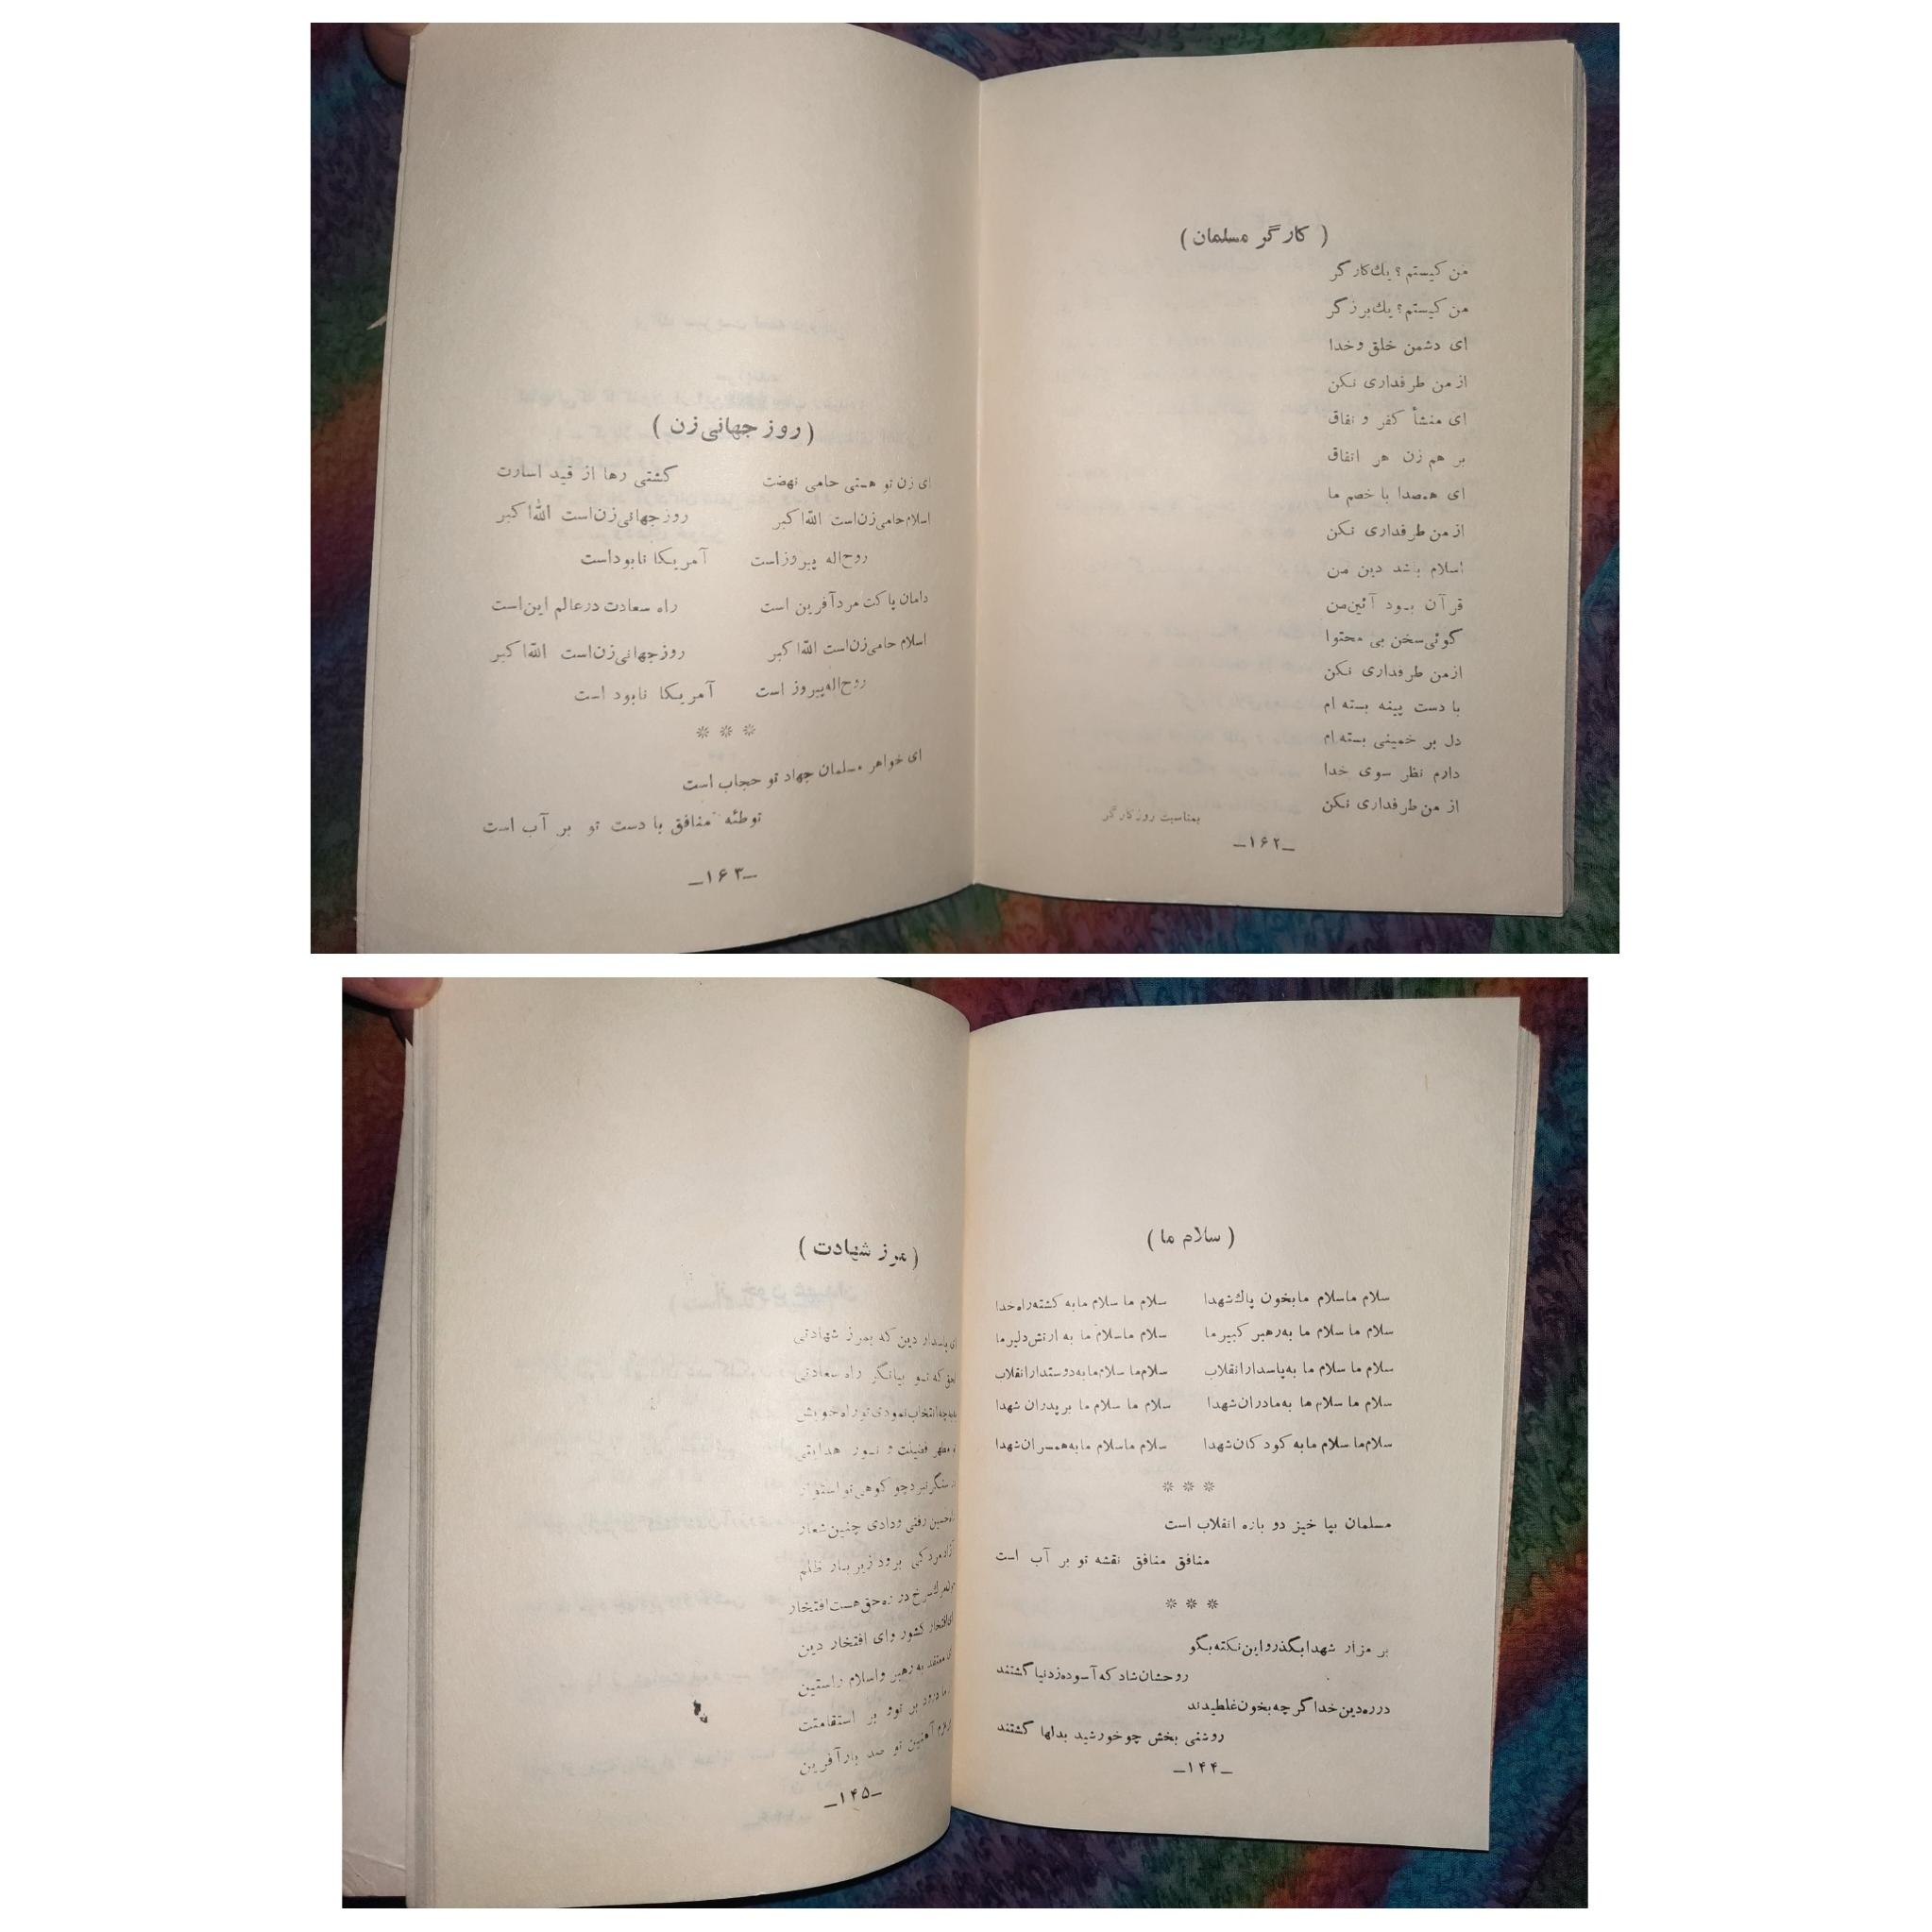 ( کارگر مسلمان )
من کیستم؟ یك‌کارگر
من کیستم؟ یك‌برزگر
ای دشمن خلق وخدا
از من طرفداری نکن
ای منشأ کفر و نفاق
بر هم زن هر اتفاق
ای همصدا با خصم ما
از من طرفداری نکن
اسلام باشد دین من
قرآن بود آئین‌من
گوئی‌سخن بی محتوا
ازمن طرفداری نکن
با دست پینه بسته ام
دل بر خمینی بسته ام
دارم نظر سوی خدا
از من طرفداری نکن
بمناسبت روزکارگر
ـ۱۶۲ـ
( روز جهانی‌زن )
ای زن تو هستی حامی نهضت گشتی رها از قید اسارت
اسلام‌حامی‌زن‌است الله‌اکبر روزجهانی‌زن‌است الله‌اکبر
روح‌اله پیروزاست آمریکا نابوداست
دامان پاکت مردآفرین است راه سعادت درعالم این‌است
اسلام حامی‌زن‌است الله‌اکبر روزجهانی‌زن‌است الله‌اکبر
روح‌اله‌پیروز است آمریکا نابود است
* * *
ای خواهر مسلمان جهاد تو حجاب است
توطئه منافق با دست تو بر آب است
ـ۱۶۳ـ
( سلام ما )
سلام ماسلام مابخون پاك‌شهدا سلام ما سلام مابه کشته‌راه‌خدا
سلام ما سلام ما به‌رهبر کبیرما سلام ماسلام ما به ارتش‌دلیرما
سلام ما سلام ما به‌پاسدارانقلاب سلام‌ما سلام‌مابه‌دوستدارانقلاب
سلام ما سلام ما به‌مادران‌شهدا سلام ما سلام ما برپدران شهدا
سلام‌ما سلام مابه کودکان‌شهدا سلام ماسلام مابه‌همسران‌شهدا
* * *
مسلمان بپا خیز دو باره انقلاب است
منافق منافق نقشه تو بر آب است
* * *
بر مزار شهدابگذرواین‌نکته‌بگو
روحشان‌شاد که‌آسوده‌زدنیا گشتند
درره‌دین‌خدا گرچه‌بخون‌غلطیدند
روشنی بخش چوخورشید بدلها گشتند
ـ۱۴۴ـ
( مرز شهادت )
ای پاسدار دین که بمرز شهادتی
که‌تو بیانگر راه سعادتی
انتخاب‌نمودی‌تو راه‌خویش
مظهر فضیلت و نور هدایتی
سنگرنبردچو کوهی‌تو استوار
حسین رفتی ودادی چنین‌شعار
آزادمردکی برودزیربار ظلم
سرخ در ره‌حق‌هست‌افتخار
افتخار کشور وای افتخار دین
معتقد به‌رهبر واسلام راستین
درود بر تو بر استقامتت
آهنین تو صد بارآفرین
ـ۱۴۵ـ